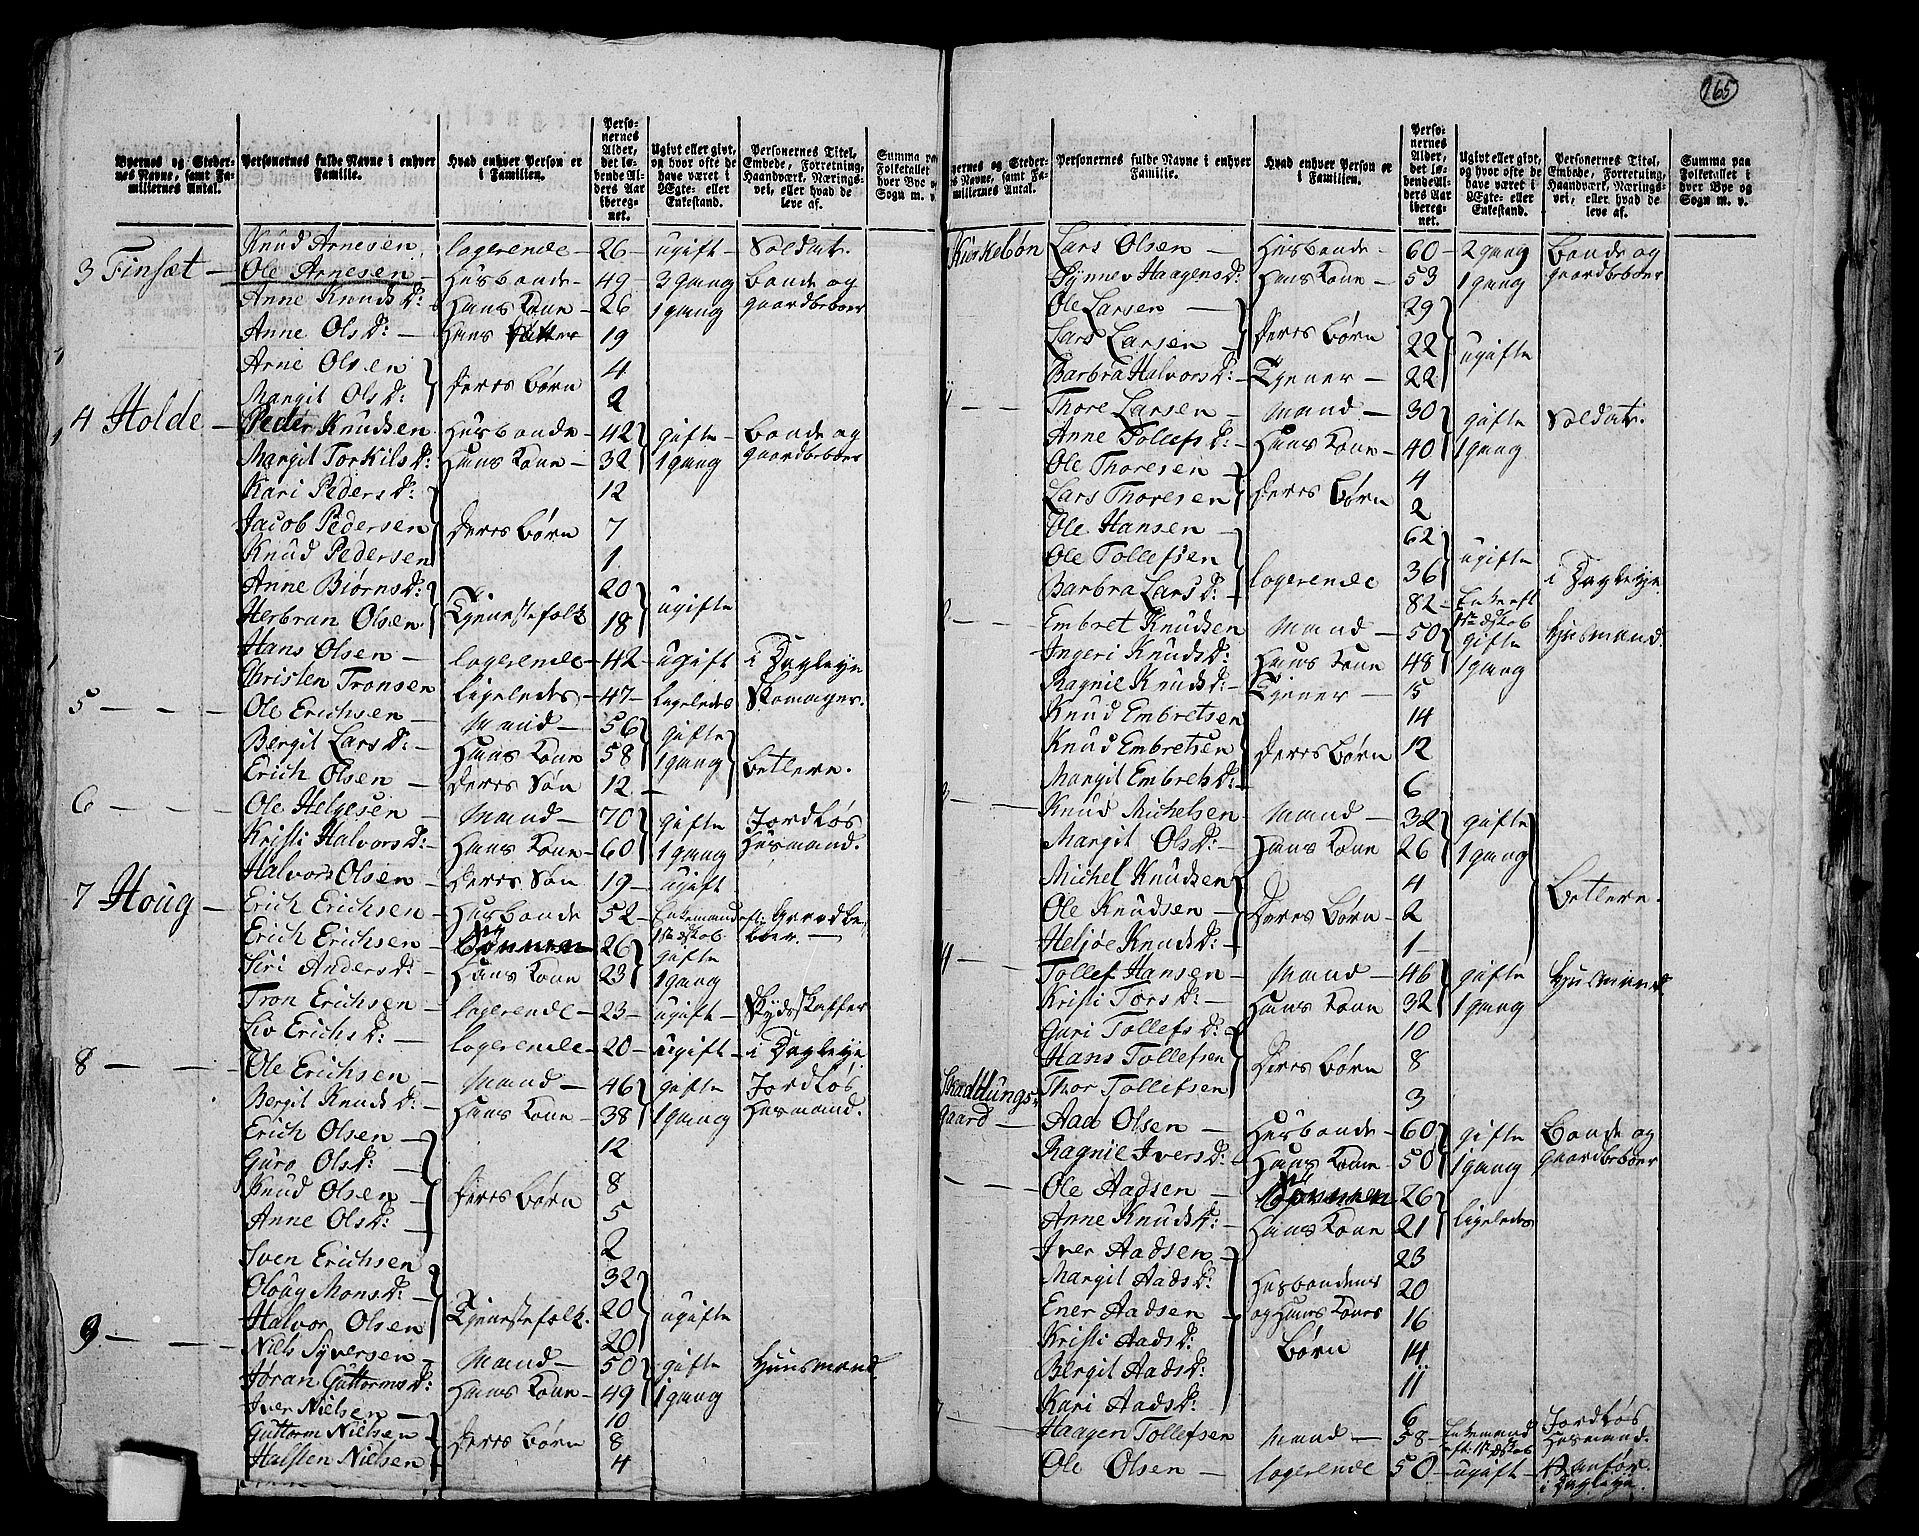 165
Byernes og Steder-
nes Navne, samt Fa-
miliernes Antal.
Personernes fulde Navne i enhver
Familie.
Hvad enhver Person er
i Familien.
Perso-
nernes
Alder,
det lø-
bende Al-
ders Aar
iberegnet.
Ugivt eller givt,
og hvor ofte de
have været i
Ægte- eller
Enkestand.
Personernes Titel,
Embede, Forretning,
Haandværk, Nærings-
vei, eller hvad de
leve af.
Summa paa
Folketallet i
hver Bye og
Sogn m. v.
Knud Arnesen logerende 26 ugift Soldat
3 Finsæt Ole Arnesen Husbonde 49 3 gang Bonde og
Anne Knudsd: Hans Kone 26 1 gang gaardbeboer
Anne Olsd: Hans Datter 19
Arne Olsen } Deres Børn 4
Margit Olsd: 2
4 Holde Peder Knudsen Husbonde 42 gifte Bonde og
Margit Torkilsd: Hans Kone 32 1 gang gaardbeboer
Kari Pedersd: 12
Jacob Pedersen Deres Børn 7
Knud Pedersen 1
Anne Biørnsd: 20
Herbran Olsen Tjenestefolk 18 ugifte
Hans Olsen logerende 42 ugift i Dagleye
Christen Tronsen Ligeledes 47 Ligeledes Skomager.
5 Ole Erichsen Mand 56 gifte
Bergit Larsd: Hans Kone 58 1 gang Betlere.
Erich Olsen Deres Søn 12
6 Ole Helgesen Mand 70 gifte Jordløs
Kristi Halvorsd: Hans Kone 60 1 gang Husmand.
Halvord Olsen Deres Søn 19 ugift
7 Houg Erich Erichsen Husbonde 52 Enkemand eft: 1ste Ægteskab Gaardbeboer.
Erich Erichsen 26 gifte
Siri Andersd: Hans Kone 23 1 gang
Tron Erichsen logerende 23 ugift Skydsskaffer
Liv Erichsd: logerende 20 ugift i Dagleye
8 Ole Erichsen Mand 46 gifte Jordløs
Bergit Knudsd: Hans Kone 38 1 gang Husmand.
Erich Olsen 12
Guro Olsd: 8
Knud Olsen Deres Børn 5
Anne Olsd: 2
Sven Erichsen 32
Oloug Monsd: 20
Halvor Olsen Tjenestefolk. 20 ugifte
9 Niels Syversen Mand 50 gifte Huusmand.
Jøran Guttormsd: Hans Kone 49 1 gang
Iver Nielsen 10
Guttorm Nielsen Deres Børn 8
Halsten Nielsen 4
Byernes og Steder-
nes Navne, samt Fa-
miliernes Antal.
Personernes fulde Navne i enhver
Familie.
Hvad enhver Person er
i Familien.
Perso-
nernes
Alder,
det lø-
bende Al-
ders Aar
iberegnet.
Ugivt eller givt,
og hvor ofte de
have været i
Ægte- eller
Enkestand.
Personernes Titel,
Embede, Forretning,
Haandværk, Nærings-
vei, eller hvad de
leve af.
Summa paa
Folketallet i
hver Bye og
Sogn m. v.
Huskebøn Lars Olsen Husbonde 60 2 gang Bonde og
Synnev Haagensd: Hans Kone 53 1 gang gaardbeboer
Ole Larsen 29
Lars Larsen Deres Børn 22 ugifte
Barbra Halvorsd: Tjener 22
Thore Larsen Mand 30 gifte Soldat.
Anne Tollefsd: Hans Kone 40 1 gang
Ole Thoresen 4
Lars Thoresen Deres Børn 2
Ole Hansen 62
Ole Tollefsen logerende 36 ugifte i Dagleye
Barbra Larsd: 82 Enke eft 1ste Ægteskab
Embret Knudsen Mand 50 gifte Husmand.
Ingeri Knudsd: Hans Kone 48 1 gang
Ragnil Knudsd: Tjener 15
Knud Embretsen 14
Knud Embretsen Deres Børn 12
Margit Embretsd: 6
3 Knud Michelsen Mand 32 gifte
Margit Olsd: Hans Kone 26 1 gang
Michel Knudsen 4 Betlere.
Ole Knudsen Deres Børn 2
Heljøe Knudsd: 1
4 Tollef Hansen Mand 46 gifte Husmand
Kristi Torsd: Hans Kone 32 1 gang
Guri Tollefsd: 10
Hans Tollefsen Deres Børn 8
Thor Tollefsen 3
gaard Aad Olsen Husbonde 60 gifte Bonde og
Ragnil Iversd: Hans Kone 50 1 gang Gaardbeboer
Ole Aadsen 26
Anne Knudsd: Hans Kone 21 ligeledes
Iver Aadsen 23
Margit Aadsd: Husbondens 20
Ener Aadsen og Hans Kones 16
Kristi Aadsd: Børn 14
Bergit Aadsd: 11
Kari Aadsd: 6
Haagen Tollefsen Mand 58 Enkemand eft: 1ste Ægteskab Jordløs Husmand.
Ole Olsen logerende 50 ugift Vanfør. i Dagleye.